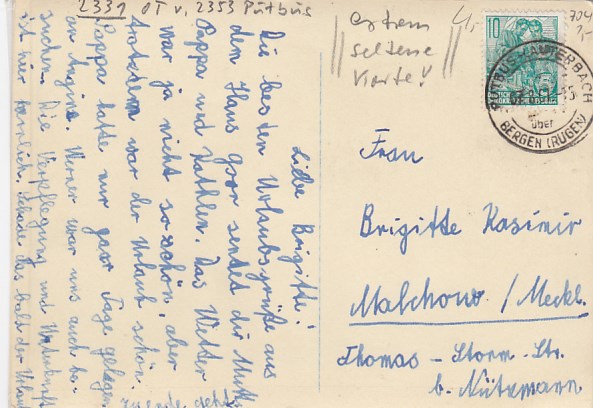 2331 OT v. 2353 Putbus
extrem
seltene
Karte!
4,-
704
2,-
10
DEUTSCHE
DEMOKRATISCHE REPUBLIK
PUTBUS-LAUTERBACH
über
BERGEN (RÜGEN)
Liebe Brigitte!
Die besten Urlaubsgrüße aus
dem Haus Goor sendet dir Mutti
Pappa und Kathlen. Das Wetter
war ja nicht so schön, aber
trotzdem war der Urlaub schön.
Pappa hatte nur paar Tage gelegen
an Angina. Werner war uns auch be-
suchen. Die Verpflegung und Unterkunft
ist hier herrlich, schade das bald der Urlaub
zuende geht.
Frau
Brigitte Kasimir
Malchow / Meckl.
Thomas - Storm - Str.
b. Nützmann